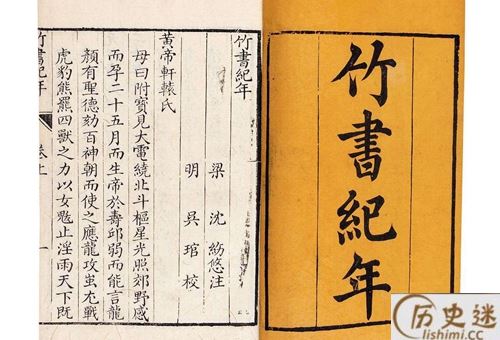 竹書紀年
竹書紀年
梁 沈約悠注
明 吳琯校
黃帝軒轅氏
母曰附寶見大電繞北斗樞星光照郊野感
而孕二十五月而生帝於壽邱弱而能言龍
顏有聖德劾百神朝而使之應龍攻蚩尤戰
虎豹熊羆四獸之力以女魃止淫雨天下既
竹書紀年
卷上
一
历史迷
lishimi.cc